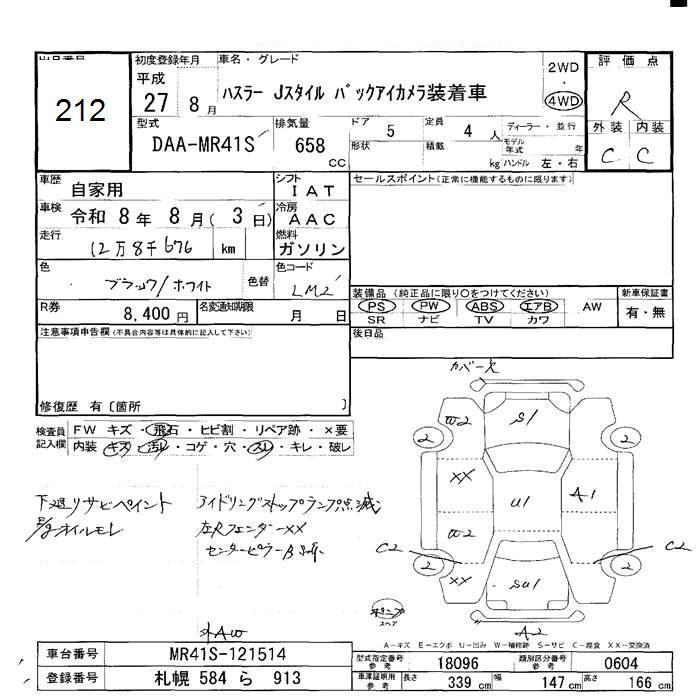 出品番号
212
初度登録年月
平成
27 8月
車名・グレード
ハスラー Jスタイル バックアイカメラ装着車
2WD
・
4WD
評価点
R
外装 内装
C C
型式
DAA-MR41S
排気量
658
CC
ドア 5
定員 4 人
形状
積載 kg
ディーラー・並行
モデル年式 年
ハンドル 左・右
車歴 自家用
シフト IAT
セールスポイント(正常に機能するものに限ります)
車検 令和 8年 8月( 3日)
冷房 AAC
走行 12万8千676 km
燃料 ガソリン
色 ブラック/ホワイト 色替
色コード LM2
装備品 (純正品に限り○をつけてください)
PS PW ABS エアB AW
SR ナビ TV カワ
新車保証書
有・無
R券 8,400円
名変通知期限 月 日
後日品
注意事項申告欄(不具合内容等は具体的に記入して下さい)
修復歴 有〔箇所 〕
検査員記入欄
FW キズ・飛石・ヒビ割・リペア跡・×要
内装 キズ・汚れ・コゲ・穴・スレ・キレ・破レ
下廻りサビペイント
E/gオイルモレ
アイドリングストップランプ点滅
左Rフェンダーxx
カバー欠
W2 S1
2 2
XX U1 A1
W2
C2 C2
XX 2 SU1 2
スペア
外AW A2
A－キズ E－エクボ U－凹み W－補修跡 S－サビ C－腐食 XX－交換済
車台番号 MR41S-121514
登録番号 札幌 584 ら 913
型式指定番号 参考 18096
類別区分番号 参考 0604
車庫証明用 参考 長さ 339 cm 幅 147 cm 高さ 166 cm